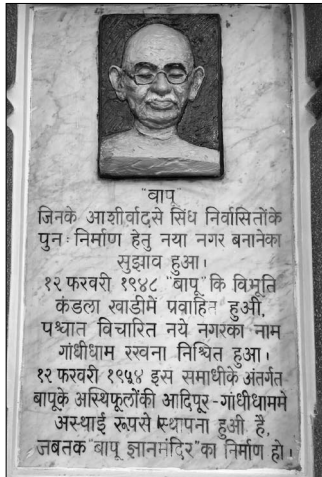 "बापू"
जिनके आशीर्वादसे सिंध निर्वासितोंके
पुनः निर्माण हेतु नया नगर बनानेका
सुझाव हुआ।
१२ फरवरी १९४८ "बापू" कि विभूति
कंडला खाडीमें प्रवाहित हुओ,
पश्चात विचारित नये नगरका नाम
गांधीधाम रखना निश्चित हुआ।
१२ फरवरी १९५४ इस समाधीके अंतर्गत
बापूके अस्थिफूलोंकी आदिपूर-गांधीधाममे
अस्थाई रूपसे स्थापना हुओ है,
जबतक "बापू ज्ञानमंदिर" का निर्माण हो।